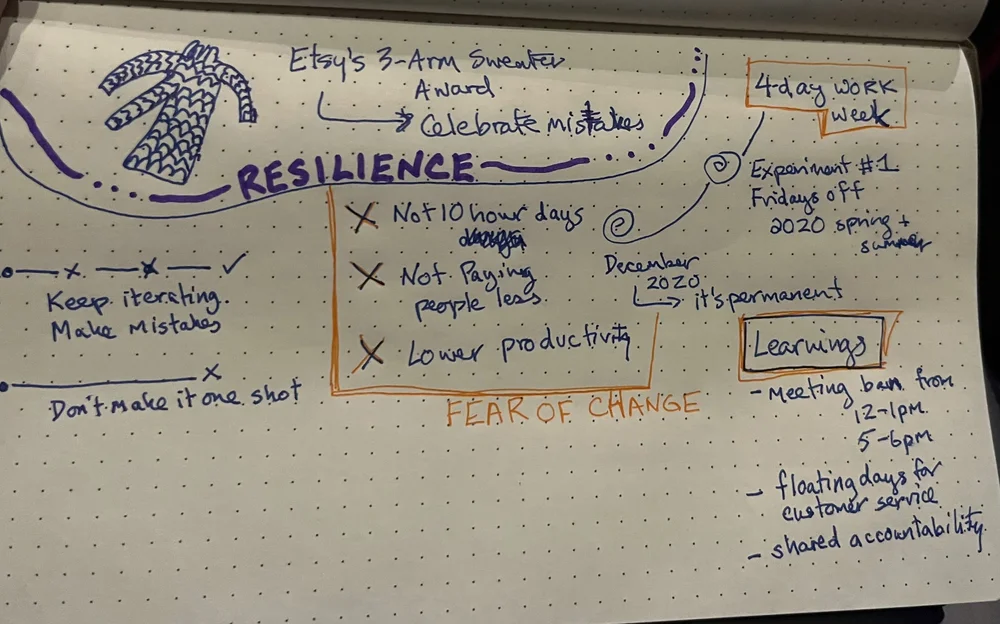 Etsy's 3-Arm Sweater
Award
Celebrate mistakes
RESILIENCE
Keep iterating.
Make Mistakes
Don't make it one shot
Not 10 hour days
Not Paying
people less.
Lower productivity
FEAR OF CHANGE
4-day WORK
week
Experiment #1
Fridays off
2020 spring +
summer
December
2020
it's permanent
Learnings
- Meeting ban from
12-1pm
5-6pm
- floating days for
customer service
- shared accountability